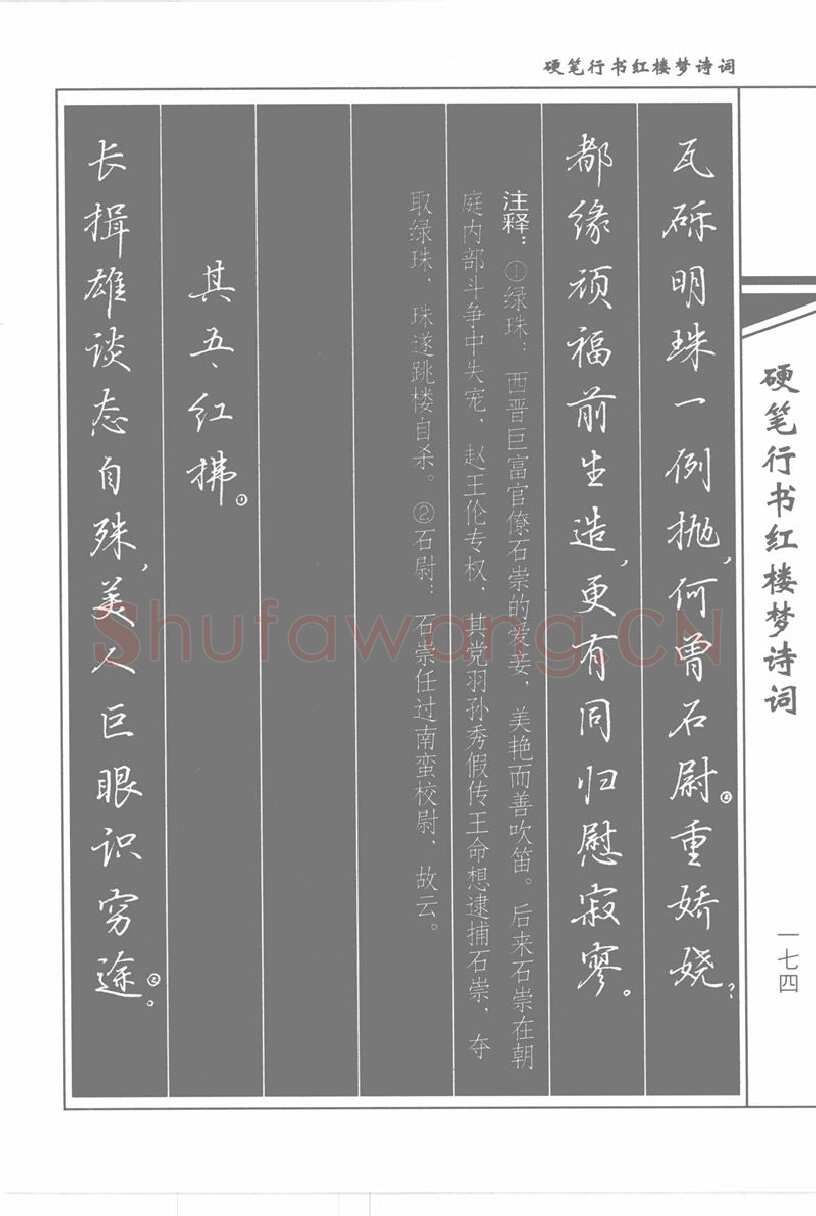 硬笔行书红楼梦诗词
瓦砾明珠一例抛，何曾石尉②重娇娆？
都缘顽福前生造，更有同归慰寂寥。
注释：①绿珠：西晋巨富官僚石崇的爱妾，美艳而善吹笛。后来石崇在朝
庭内部斗争中失宠，赵王伦专权，其党羽孙秀假传王命想逮捕石崇，夺
取绿珠，珠遂跳楼自杀。②石尉：石崇任过南蛮校尉，故云。
其五、红拂①
长揖雄谈态自殊，美人巨眼识穷途②。
硬笔行书红楼梦诗词
一七四
Shufawang.CN